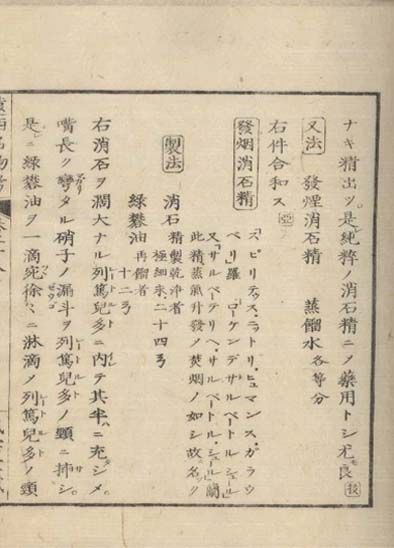 ナキ精出ツ。是純粋ノ消石精ニ〆藥用トシ尤モ良
又法 發煙消石精 蒸餾水 各等分
右件合和ス
發烟消石精 「スピリテュス、ニトリ、ヒュマンス、ガラウ
ベリ」羅 「ローケンデ サルペートルシュール」
又「サルペーテリヘ、サルペートルシュール」蘭
此精蒸氣升發〆焚烟ノ如シ故ニ名ック
製法 消石 精製乾浄者 極細末 二十四ヲ
緑礬油 再餾者 十二ヲ
右消石ヲ潤大ナル列篤兒多ニ内テ其半ニ充シメ。
嘴長ク彎タル硝子ノ漏斗ヲ列篤兒多ノ頸ニ挿シ。
是ニ緑礬油ヲ一滴宛徐々ニ淋滴〆列篤兒多ノ頸